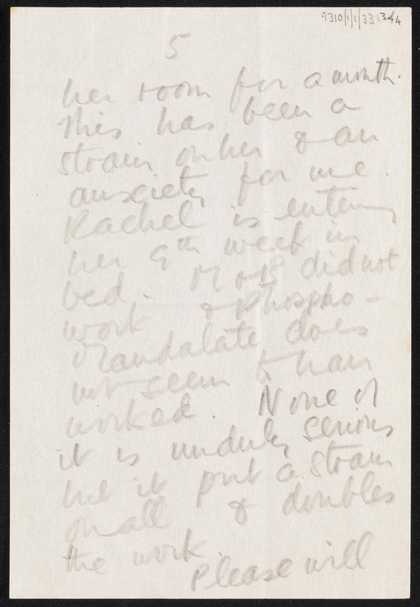 9310/1/1/33
5
her room for a month.
This has been a
strain on her & an
anxiety for me.
Rachel is entering
her 9th week in
bed. M & B did not
work & Phospho-
Mandalate does
not seem to have
worked. None of
it is unduly serious
but it put a strain
on all & doubles
the work.
Please will